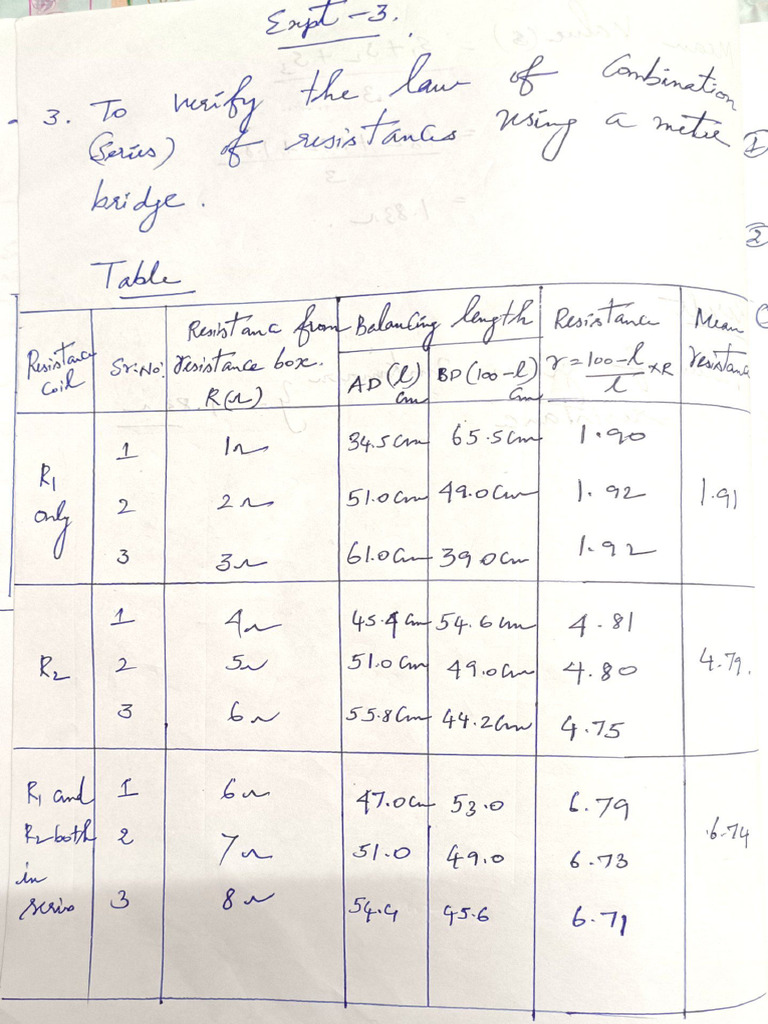 Expt-3.
3. To verify the law of Combination
(Series) of resistances using a metre
bridge.
Table
Resistance coil | Sr.No. | Resistanc from resistance box. R(Ω) | Balancing length AD (l) cm | BD (100-l) cm | Resistance r = 100-l / l × R | Mean resistance
R1 only | 1 | 1Ω | 34.5cm | 65.5cm | 1.90 | 1.91
2 | 2Ω | 51.0cm | 49.0cm | 1.92
3 | 3Ω | 61.0cm | 39.0cm | 1.92
R2 | 1 | 4Ω | 45.4cm | 54.6cm | 4.81 | 4.79.
2 | 5Ω | 51.0cm | 49.0cm | 4.80
3 | 6Ω | 55.8cm | 44.2cm | 4.75
R1 and R2 both in series | 1 | 6Ω | 47.0cm | 53.0 | 6.79 | 6.74
2 | 7Ω | 51.0 | 49.0 | 6.73
3 | 8Ω | 54.4 | 45.6 | 6.71